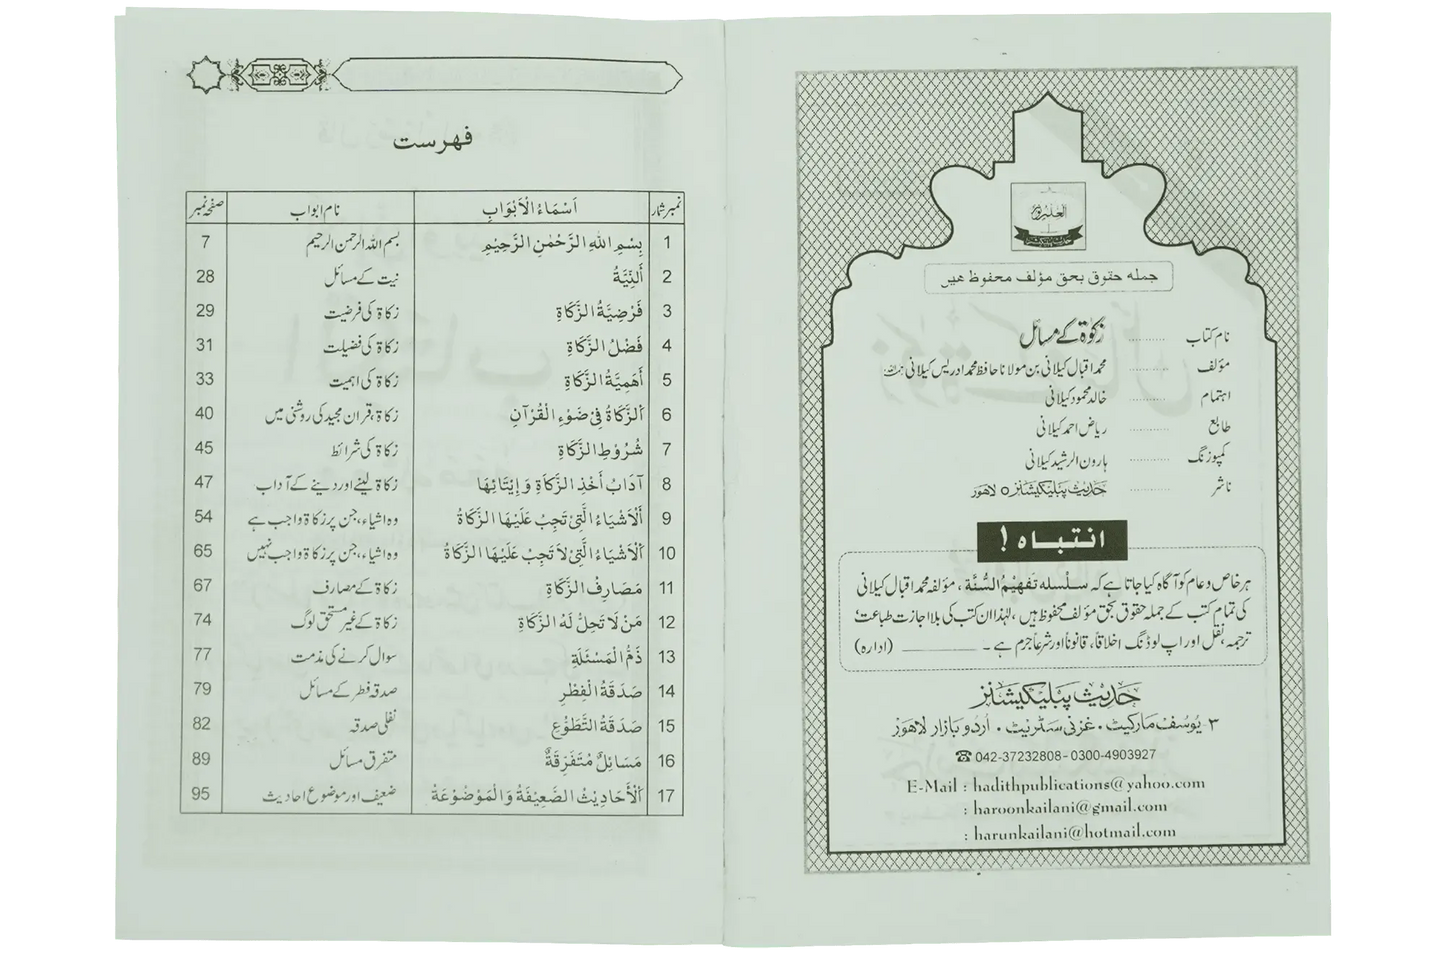 العلم نور
جملہ حقوق بحق مؤلف محفوظ ھیں
نام کتاب .......... زکوٰۃ کے مسائل
مؤلف .......... محمد اقبال کیلانی بن مولانا حافظ محمد ادریس کیلانی
اہتمام .......... خالد محمود کیلانی
طابع .......... ریاض احمد کیلانی
کمپوزنگ .......... ہارون الرشید کیلانی
ناشر .......... حدیث پبلیکیشنز ○ لاھور
انتباہ !
ہر خاص و عام کو آگاہ کیا جاتا ہے کہ سلسلہ تفهیمُ السُّنة ، مؤلفہ محمد اقبال کیلانی
کی تمام کتب کے جملہ حقوق بحق مؤلف محفوظ ہیں ، لہٰذا ان کتب کی بلا اجازت طباعت ،
ترجمہ ، نقل اور اپ لوڈنگ اخلاقاً ، قانوناً اور شرعاً جرم ہے ۔ ________ (ادارہ)
حدیث پبلیکیشنز
۳ یوسف مارکیٹ ۔ غزنی سٹریٹ ۔ اُردو بازار لاھور
☎ 042-37232808 - 0300-4903927
E-Mail : hadithpublications@yahoo.com
: haroonkailani@gmail.com
: harunkailani@hotmail.com
فہرست
نمبر شمار اَسْمَاءُ الْاَبْوَابِ نام ابواب صفحہ نمبر
1 بِسْمِ اللّٰهِ الرَّحْمٰنِ الرَّحِيْمِ بسم اللہ الرحمن الرحیم 7
2 أَلنِّيَّةُ نیت کے مسائل 28
3 فَرْضِيَّةُ الزَّكَاةِ زکاۃ کی فرضیت 29
4 فَضْلُ الزَّكَاةِ زکاۃ کی فضیلت 31
5 أَهَمِيَّةُ الزَّكَاةِ زکاۃ کی اہمیت 33
6 اَلزَّكَاةُ فِىْ ضَوْءِ الْقُرْآنِ زکاۃ ، قرآن مجید کی روشنی میں 40
7 شُرُوْطِ الزَّكَاةِ زکاۃ کی شرائط 45
8 آدَابُ أَخْذِ الزَّكَاةِ وَ إِيْتَائِهَا زکاۃ لینے اور دینے کے آداب 47
9 أَلْأَشْيَاءُ الَّتِىْ تَجِبُ عَلَيْهَا الزَّكَاةُ وہ اشیاء ، جن پر زکاۃ واجب ہے 54
10 اَلْأَشْيَاءُ الَّتِىْ لَا تَجِبُ عَلَيْهَا الزَّكَاةُ وہ اشیاء ، جن پر زکاۃ واجب نہیں 65
11 مَصَارِفُ الزَّكَاةِ زکاۃ کے مصارف 67
12 مَنْ لَا تَحِلُّ لَهُ الزَّكَاةِ زکاۃ کے غیر مستحق لوگ 74
13 ذَمُّ الْمَسْئَلَةِ سوال کرنے کی مذمت 77
14 صَدَقَةُ الْفِطْرِ صدقہ فطر کے مسائل 79
15 صَدَقَةُ التَّطَوُّعِ نفلی صدقہ 82
16 مَسَائِلٌ مُتَفَرِّقَةٌ متفرق مسائل 89
17 اَلْأَحَادِيْثُ الضَّعِيْفَةُ وَ الْمَوْضُوْعَةُ ضعیف اور موضوع احادیث 95